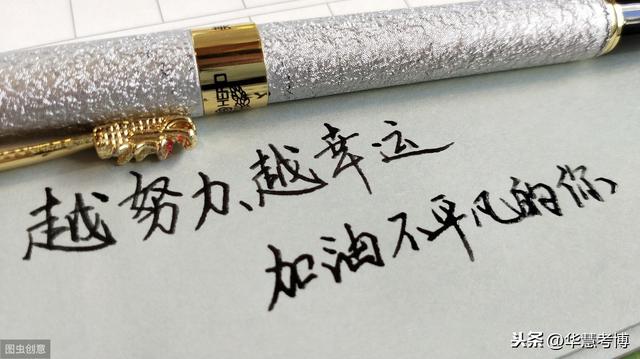 越努力、越幸运
加油不平凡的你、
图虫创意
头条@华慧考博